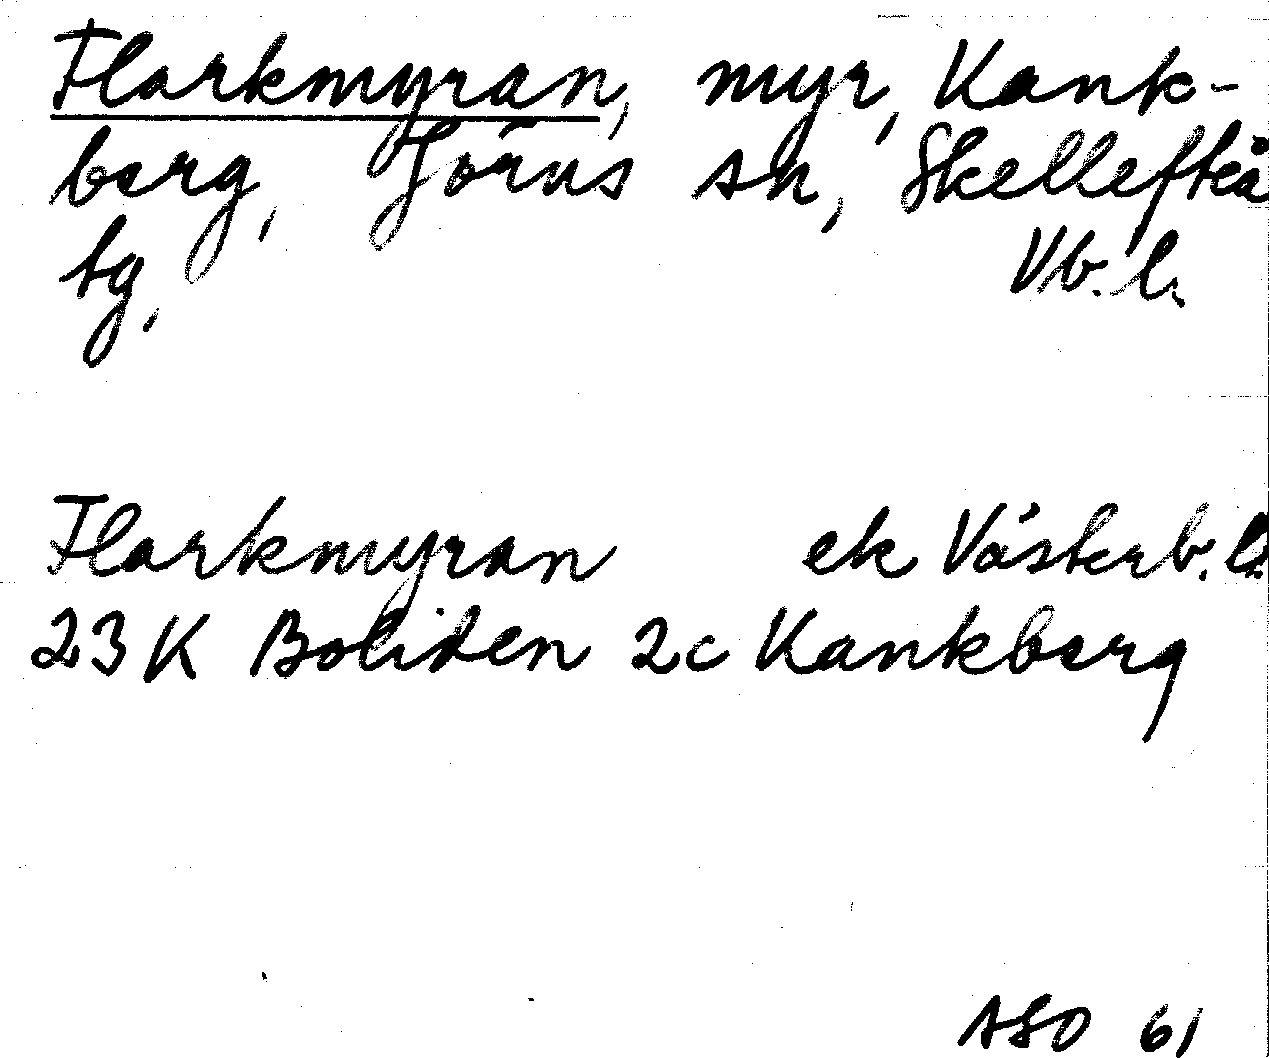 Flarkmyran, myr, Kank-
berg, Jörns sn, Skellefteå
tg, Vb. l.
Flarkmyran ek Västerb. l.
23 K Boliden 2c Kankberg
ASO 61